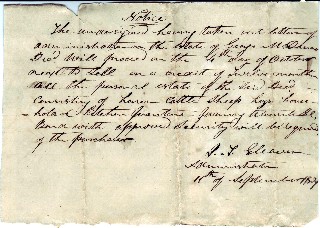 Notice
The undersigned having taken out letters of
administration on the Estate of George M
Decd Will proceed on the 4th day of October
next to Sell on a credit of twelve months
all the personal estate of the Said Decd
Consisting of horses Cattle Sheep Hogs house
hold & Kitchen furniture farming utensils &c
Bond with approved Security will be required
of the purchaser
Administrator
11th of September